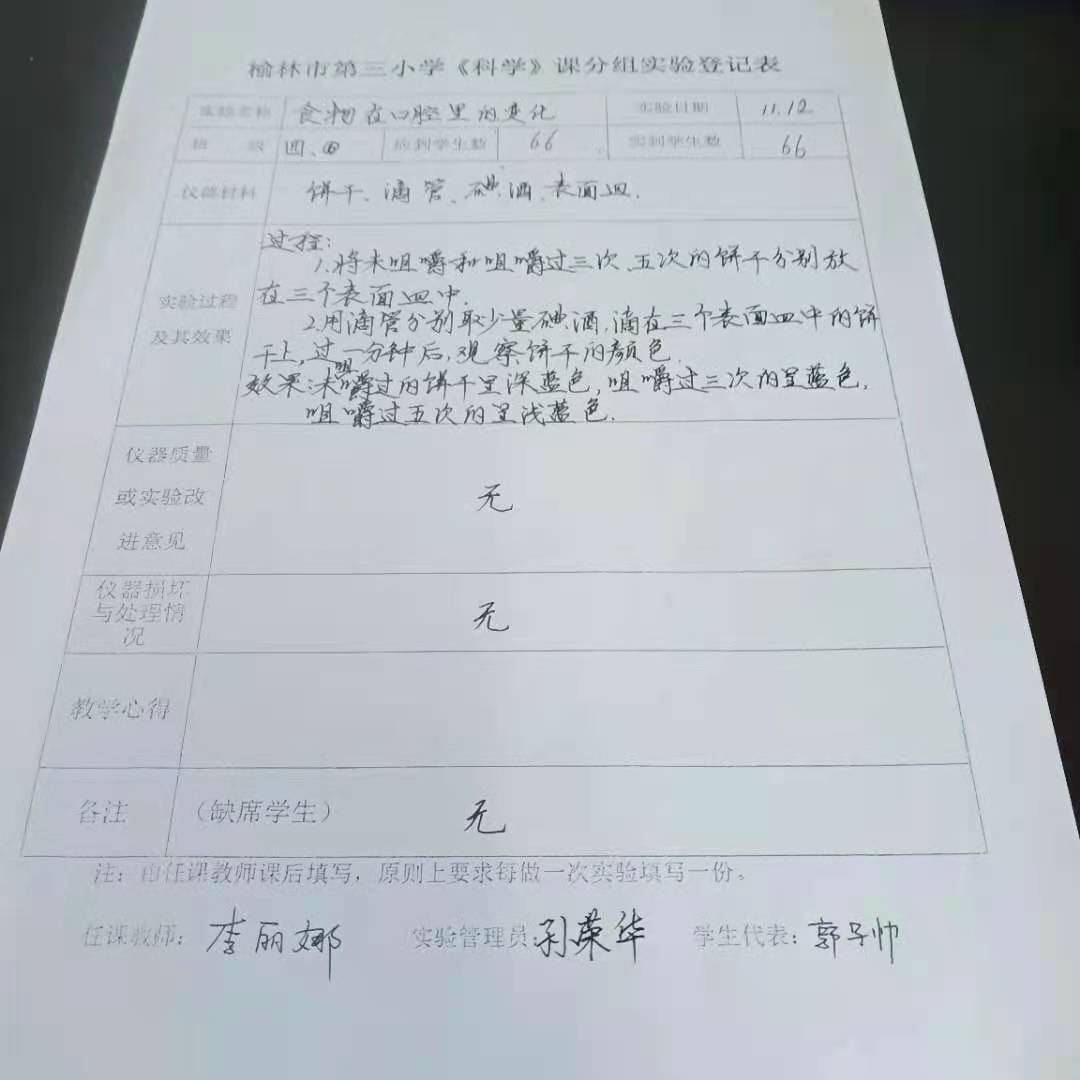 榆林市第三小学《科学》课分组实验登记表
实验名称 食物在口腔里的变化 实验日期 11.12
班 级 四、⑥ 应到学生数 66 实到学生数 66
仪器材料 饼干、滴管、碘酒、表面皿.
过程:
1.将未咀嚼和咀嚼过三次、五次的饼干分别放
在三个表面皿中.
实验过程
及其效果
2.用滴管分别取少量碘酒,滴在三个表面皿中的饼
干上,过一分钟后,观察饼干的颜色.
效果:未咀嚼过的饼干呈深蓝色,咀嚼过三次的呈蓝色,
咀嚼过五次的呈浅蓝色.
仪器质量
或实验改
进意见
无
仪器损坏
与处理情
况
无
教学心得
备注 (缺席学生) 无
注:由任课教师课后填写,原则上要求每做一次实验填写一份。
任课教师: 李丽娜 实验管理员: 刘荣华 学生代表: 郭子帅